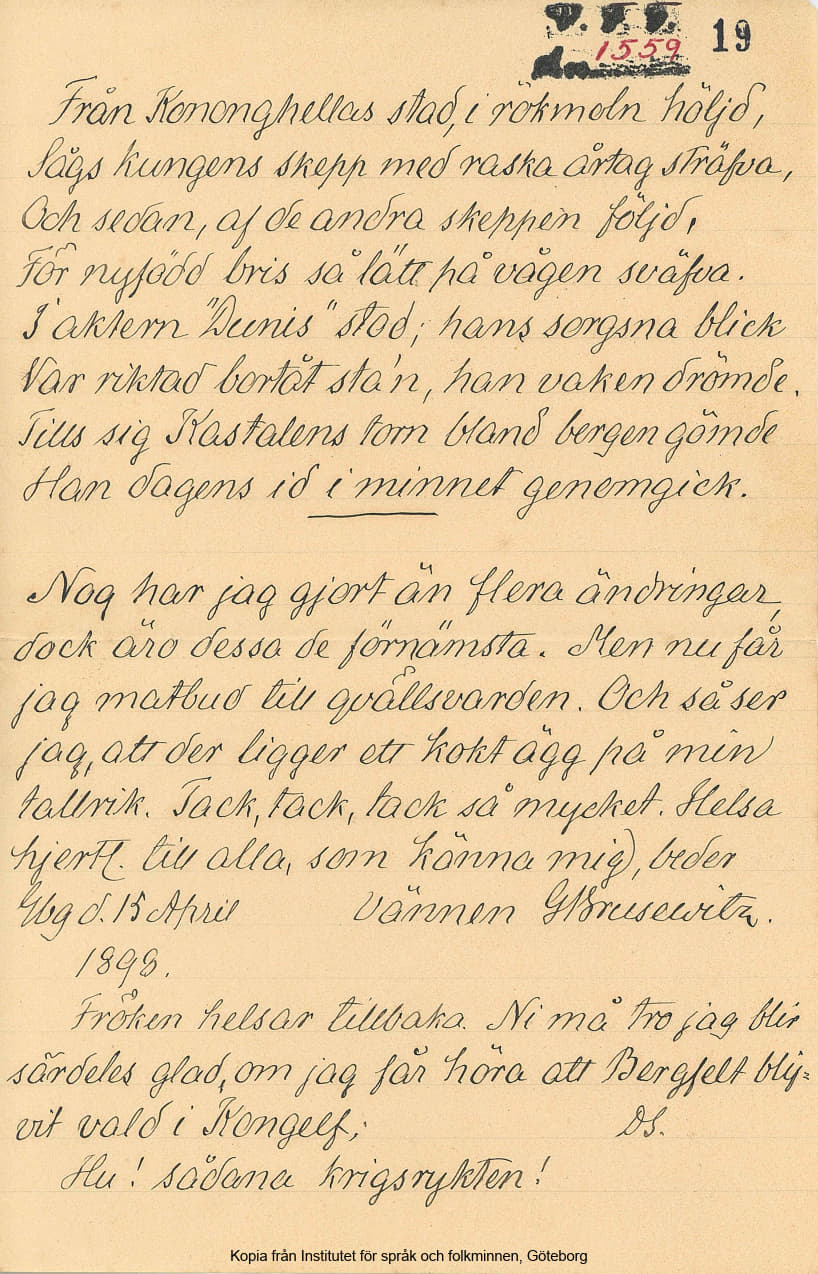 V. F. F.
1559
19
Från Kononghellas stad, i rökmoln höljd,
Sågs kungens skepp med raska årtag sträfva,
Och sedan, af de andra skeppen följd,
För nyfödd bris så lätt på vågen sväfva.
I aktern "Dunis" stod; hans sorgsna blick
Var riktad bortåt sta'n, han vaken drömde.
Tills sig Kastalens torn bland bergen gömde
Han dagens id i minnet genomgick.
Nog har jag gjort än flera ändringar,
dock äro dessa de förnämsta. Men nu får
jag matbud till qvällsvarden. Och så ser
jag, att der ligger ett kokt ägg på min
tallrik. Tack, tack, tack så mycket. Helsa
hjertl. till alla, som känna mig, beder
Gbg d. 15 April vännen GBrusewitz.
1898.
Fröken helsar tillbaka. Ni må tro jag blir
särdeles glad, om jag får höra att Bergfelt bli-
vit vald i Kongelf; DS.
Hu! sådana krigsrykten!
Kopia från Institutet för språk och folkminnen, Göteborg